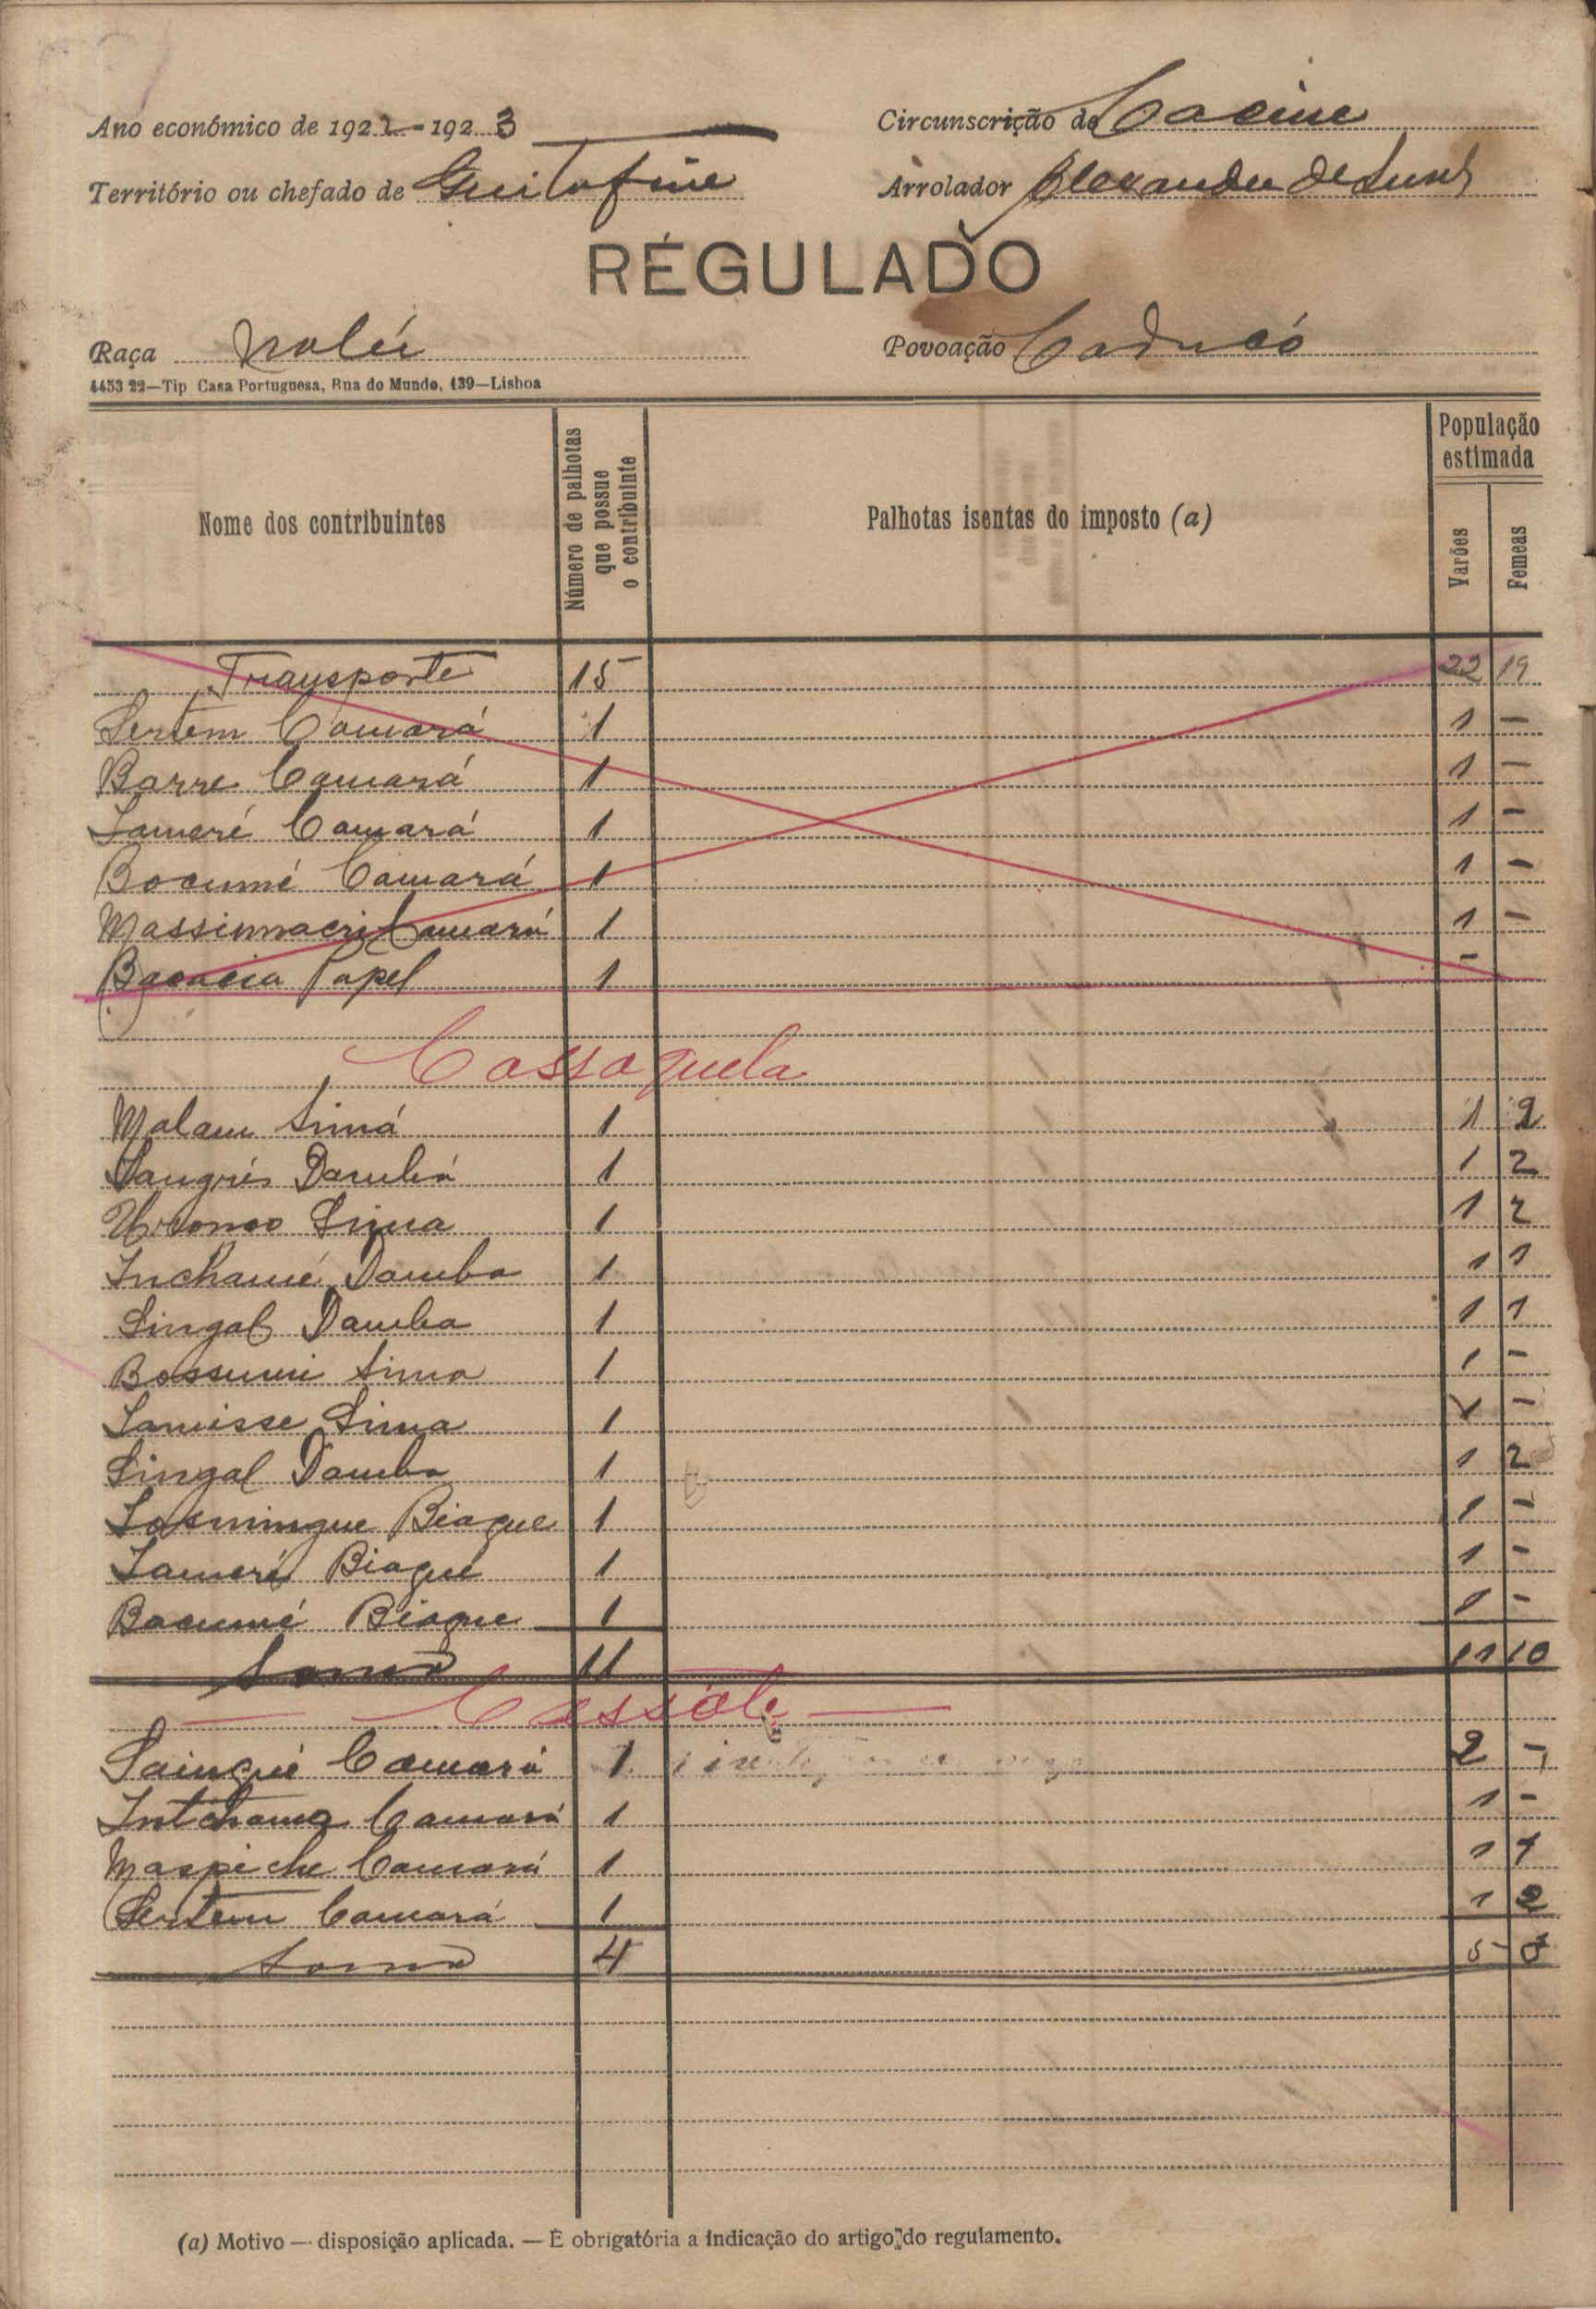 Ano económico de 1922-1923
Circunscrição de Cacine
Território ou chefado de Guitafine
Arrolador Alexandre de
RÉGULADO
Raça Nalú
Povoação Caducó
4453 22—Tip Casa Portuguesa, Rua do Mundo, 139—Lisboa
Nome dos contribuintes
Número de palhotas que possue o contribuinte
Palhotas isentas do imposto (a)
População estimada
Varões
Femeas
Transporte 15 22 19
Sertem Camará 1 1 —
Barre Camará 1 1 —
Lameré Camará 1 1 —
Bocumé Camará 1 1 —
Massimacri Camará 1 1 —
Papel 1 —
Cassaquela
Malam Simá 1 1 2
Dambá 1 1 2
Sima 1 1 2
Inchamé Damba 1 1 1
Singal Damba 1 1 1
Bossumi Sima 1 1 —
Lamisse Sima 1 1 —
Singal Damba 1 1 2
Biague 1 1 —
Lameré Biagué 1 1 —
Bacumé Biague 1 1 —
Soma 11 11 10
Cassóle
Camará 1 2 —
Intchama Camará 1 1 —
Maspiche Camará 1 1 1
Sertem Camará 1 1 2
Soma 4 5 3
(a) Motivo — disposição aplicada. — È obrigatória a indicação do artigo do regulamento.